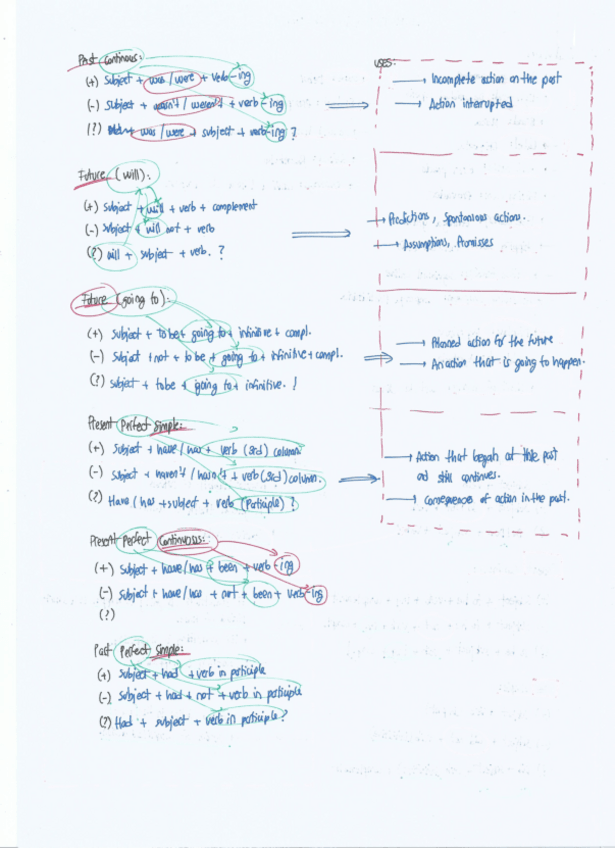 Past Continous:
(+) Subject + was/were + verb -ing
(-) Subject + wasn't / weren't + verb -ing
(?) was/were + subject + verb-ing ?
USES:
→ Incomplete action on the past
→ Action interrupted
Future (will):
(+) Subject + will + verb + complement
(-) Subject + will not + verb
(?) will + subject + verb. ?
→ Predictions, Spontanious actions.
→ Assumptions, Promisses
Future (going to):
(+) Subject + to be + going to + infinitive + compl.
(-) Subject + not + to be + going to + infinitive + compl.
(?) Subject + to be + going to + infinitive. !
→ Planned action for the future
→ An action that is going to happen.
Present Perfect Simple:
(+) Subject + have / has + verb (3rd) column.
(-) Subject + haven't / hasn't + verb (3rd) column.
(?) Have / has + subject + verb (Participle) ?
→ Action that began at the past
and still continues.
→ Consequence of action in the past.
Present Perfect Continuous:
(+) Subject + have / has + been + verb -ing
(-) Subject + have / has + not + been + verb -ing
(?)
Past Perfect Simple:
(+) Subject + had + verb in participle
(-) Subject + had + not + verb in participle
(?) Had + subject + verb in participle?